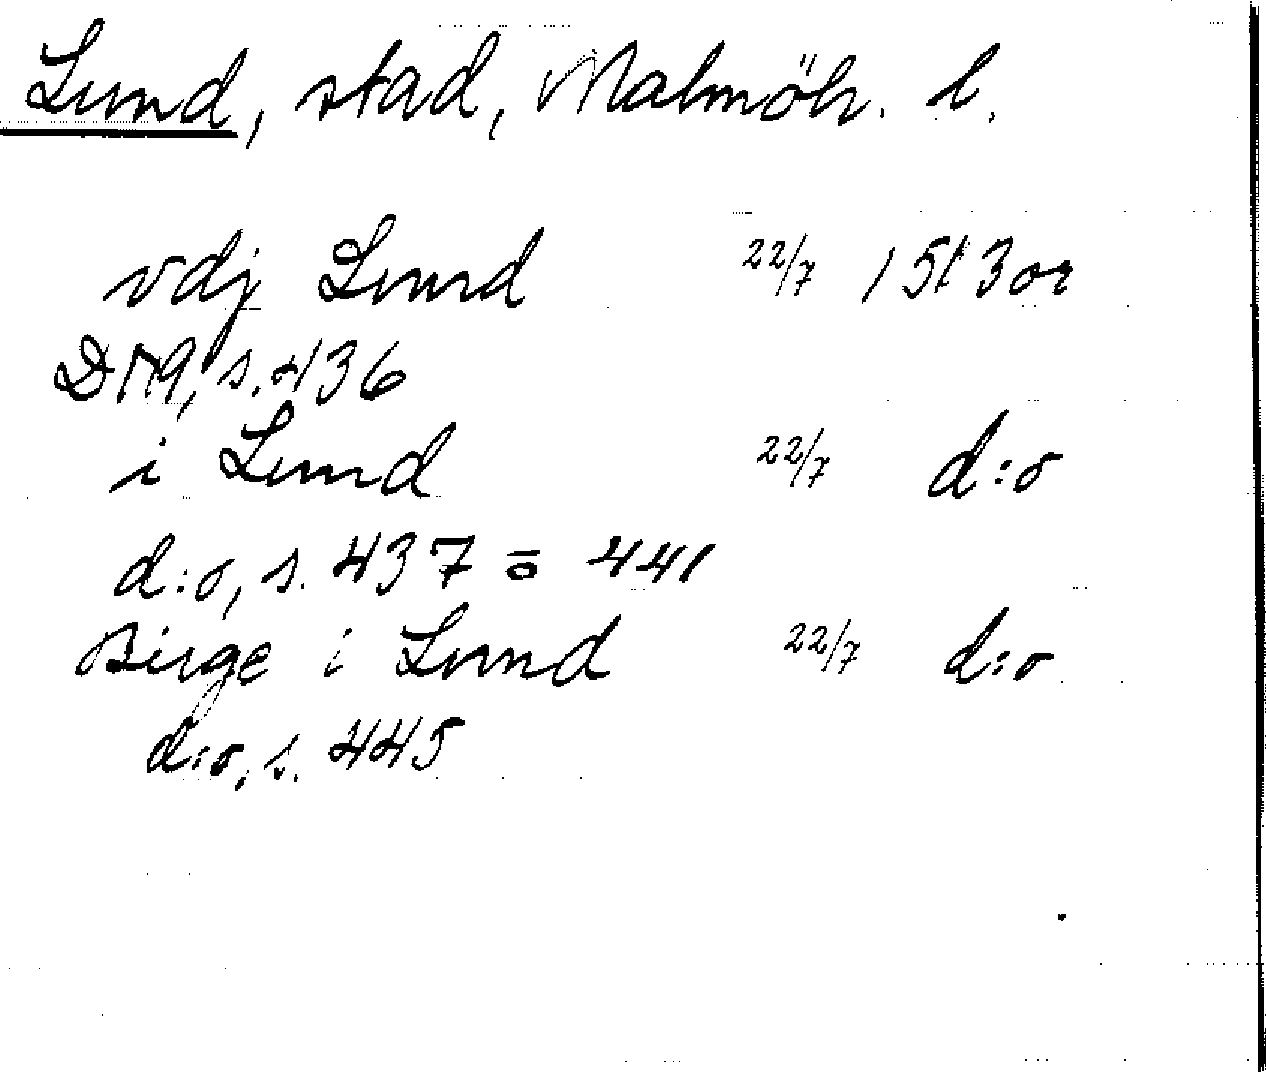 Lund, stad, Malmöh. l.
vdj Lund 22/7 1513 or
DMA, s. 436
i Lund 22/7 d:o
d:o, s. 437 ō 441
Birge i Lund 22/7 d:o
d:o, s. 445